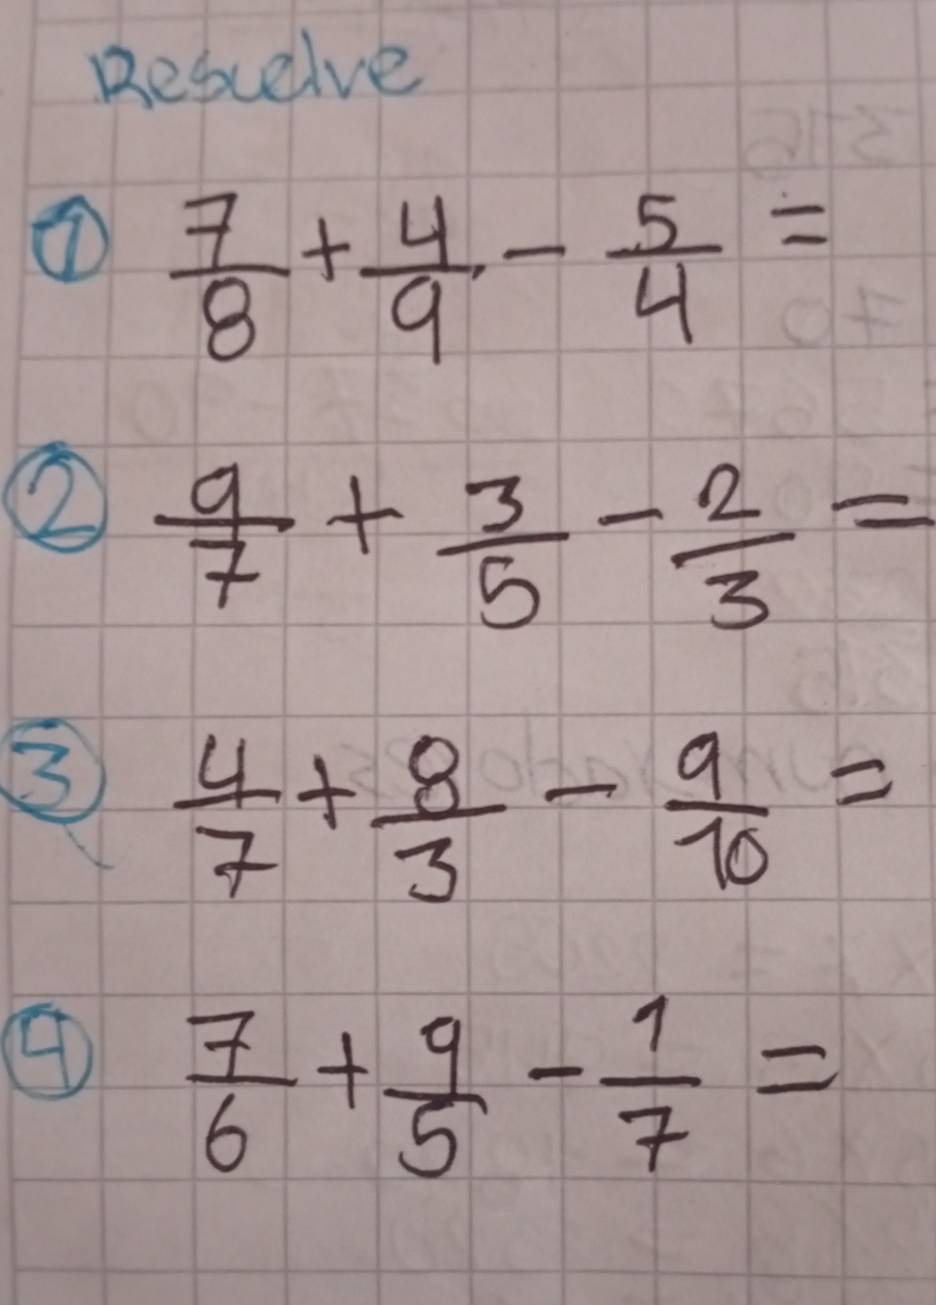 Resuelve
① 7/8 + 4/9 - 5/4 =
② 9/7 + 3/5 - 2/3 =
③ 4/7 + 8/3 - 9/10 =
④ 7/6 + 9/5 - 1/7 =